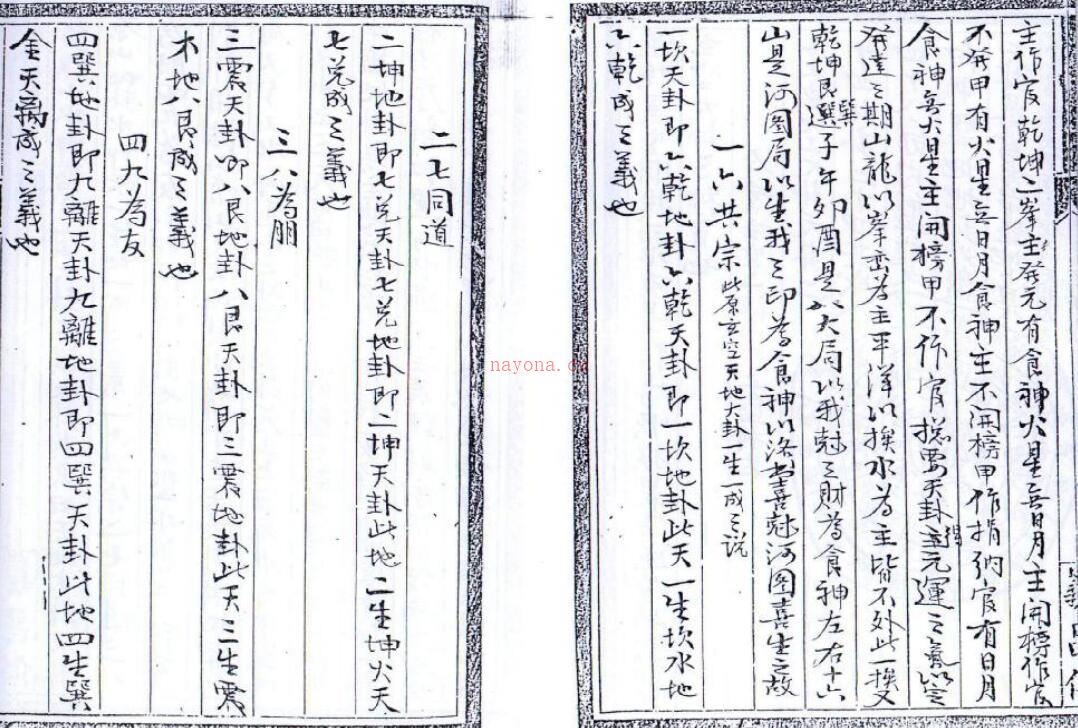 主作官乾坤二峯主發元有食神火星無日月主開榜作官
不發甲有火星無日月食神主不開榜甲作捐納官有日月
食神無火星主開榜甲不作官揔要天卦得元運之氣以定
發達之期山龍以峯巒為主平洋以挨水為主皆不外此一挨又
乾坤艮巽選子午卯酉是八大局以我尅之財為食神左右十六
山是河圖局以生我之印為食神以洛書喜尅河圖喜生之故
一六共宗 此原玄空天地大卦一生一成之說
一坎天卦即六乾地卦六乾天卦即一坎地卦此天一生坎水地
六乾成之義也
二七同道
二坤地卦即七兌天卦七兌地卦即二坤天卦此地二生坤火天
七兌成之義也
三八為朋
三震天卦即八艮地卦八艮天卦即三震地卦此天三生震
木地八艮成之義也
四九為友
四巽地卦即九離天卦九離地卦即四巽天卦此地四生巽
金天离成之義也
nayona.cc